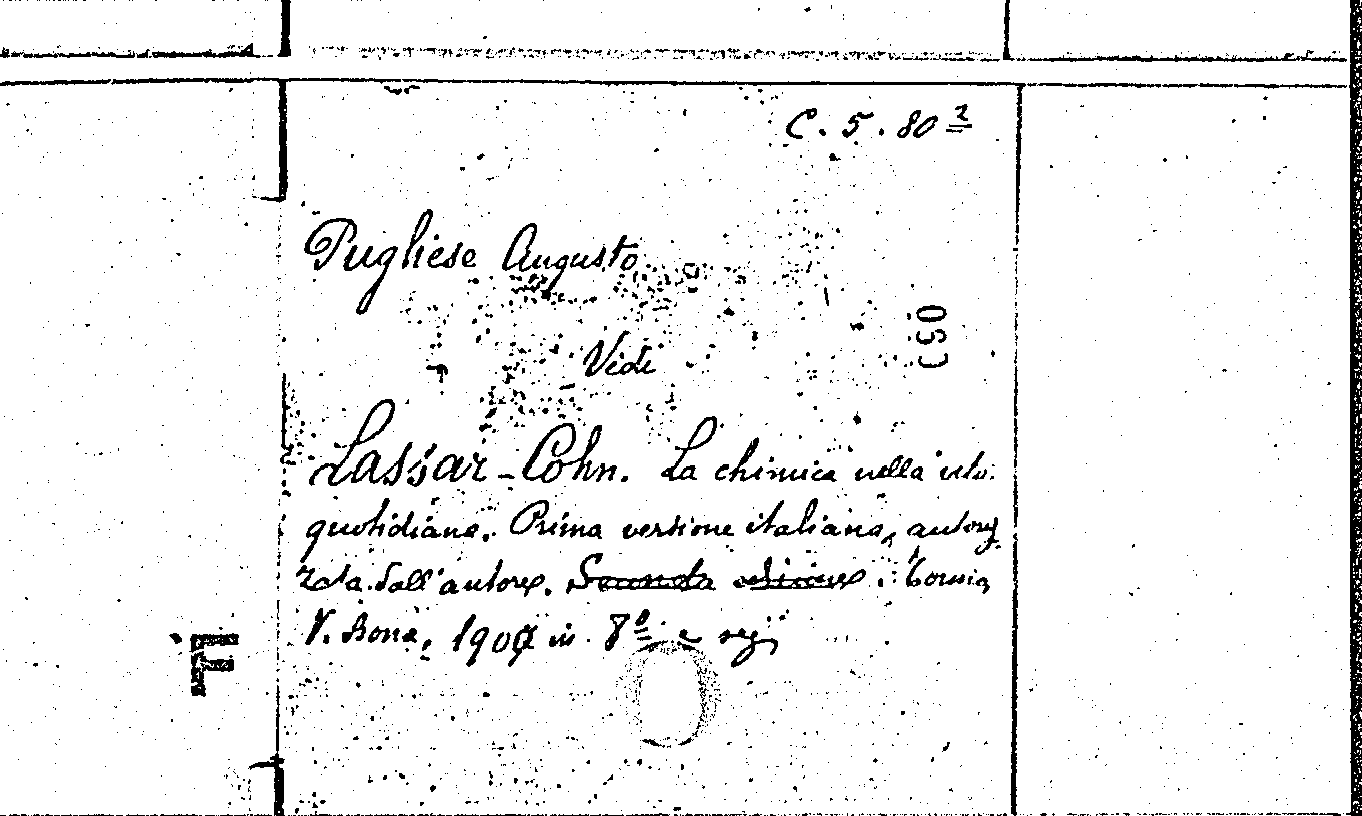 C. 5. 80 2
Pugliese Augusto
Vedi
Lassar-Cohn. La chimica nella vita
quotidiana. Prima versione italiana, autoriz
zata dall'autore. Seconda edizione. Torino,
V. Bona, 1900 in 8º e seg
050
F